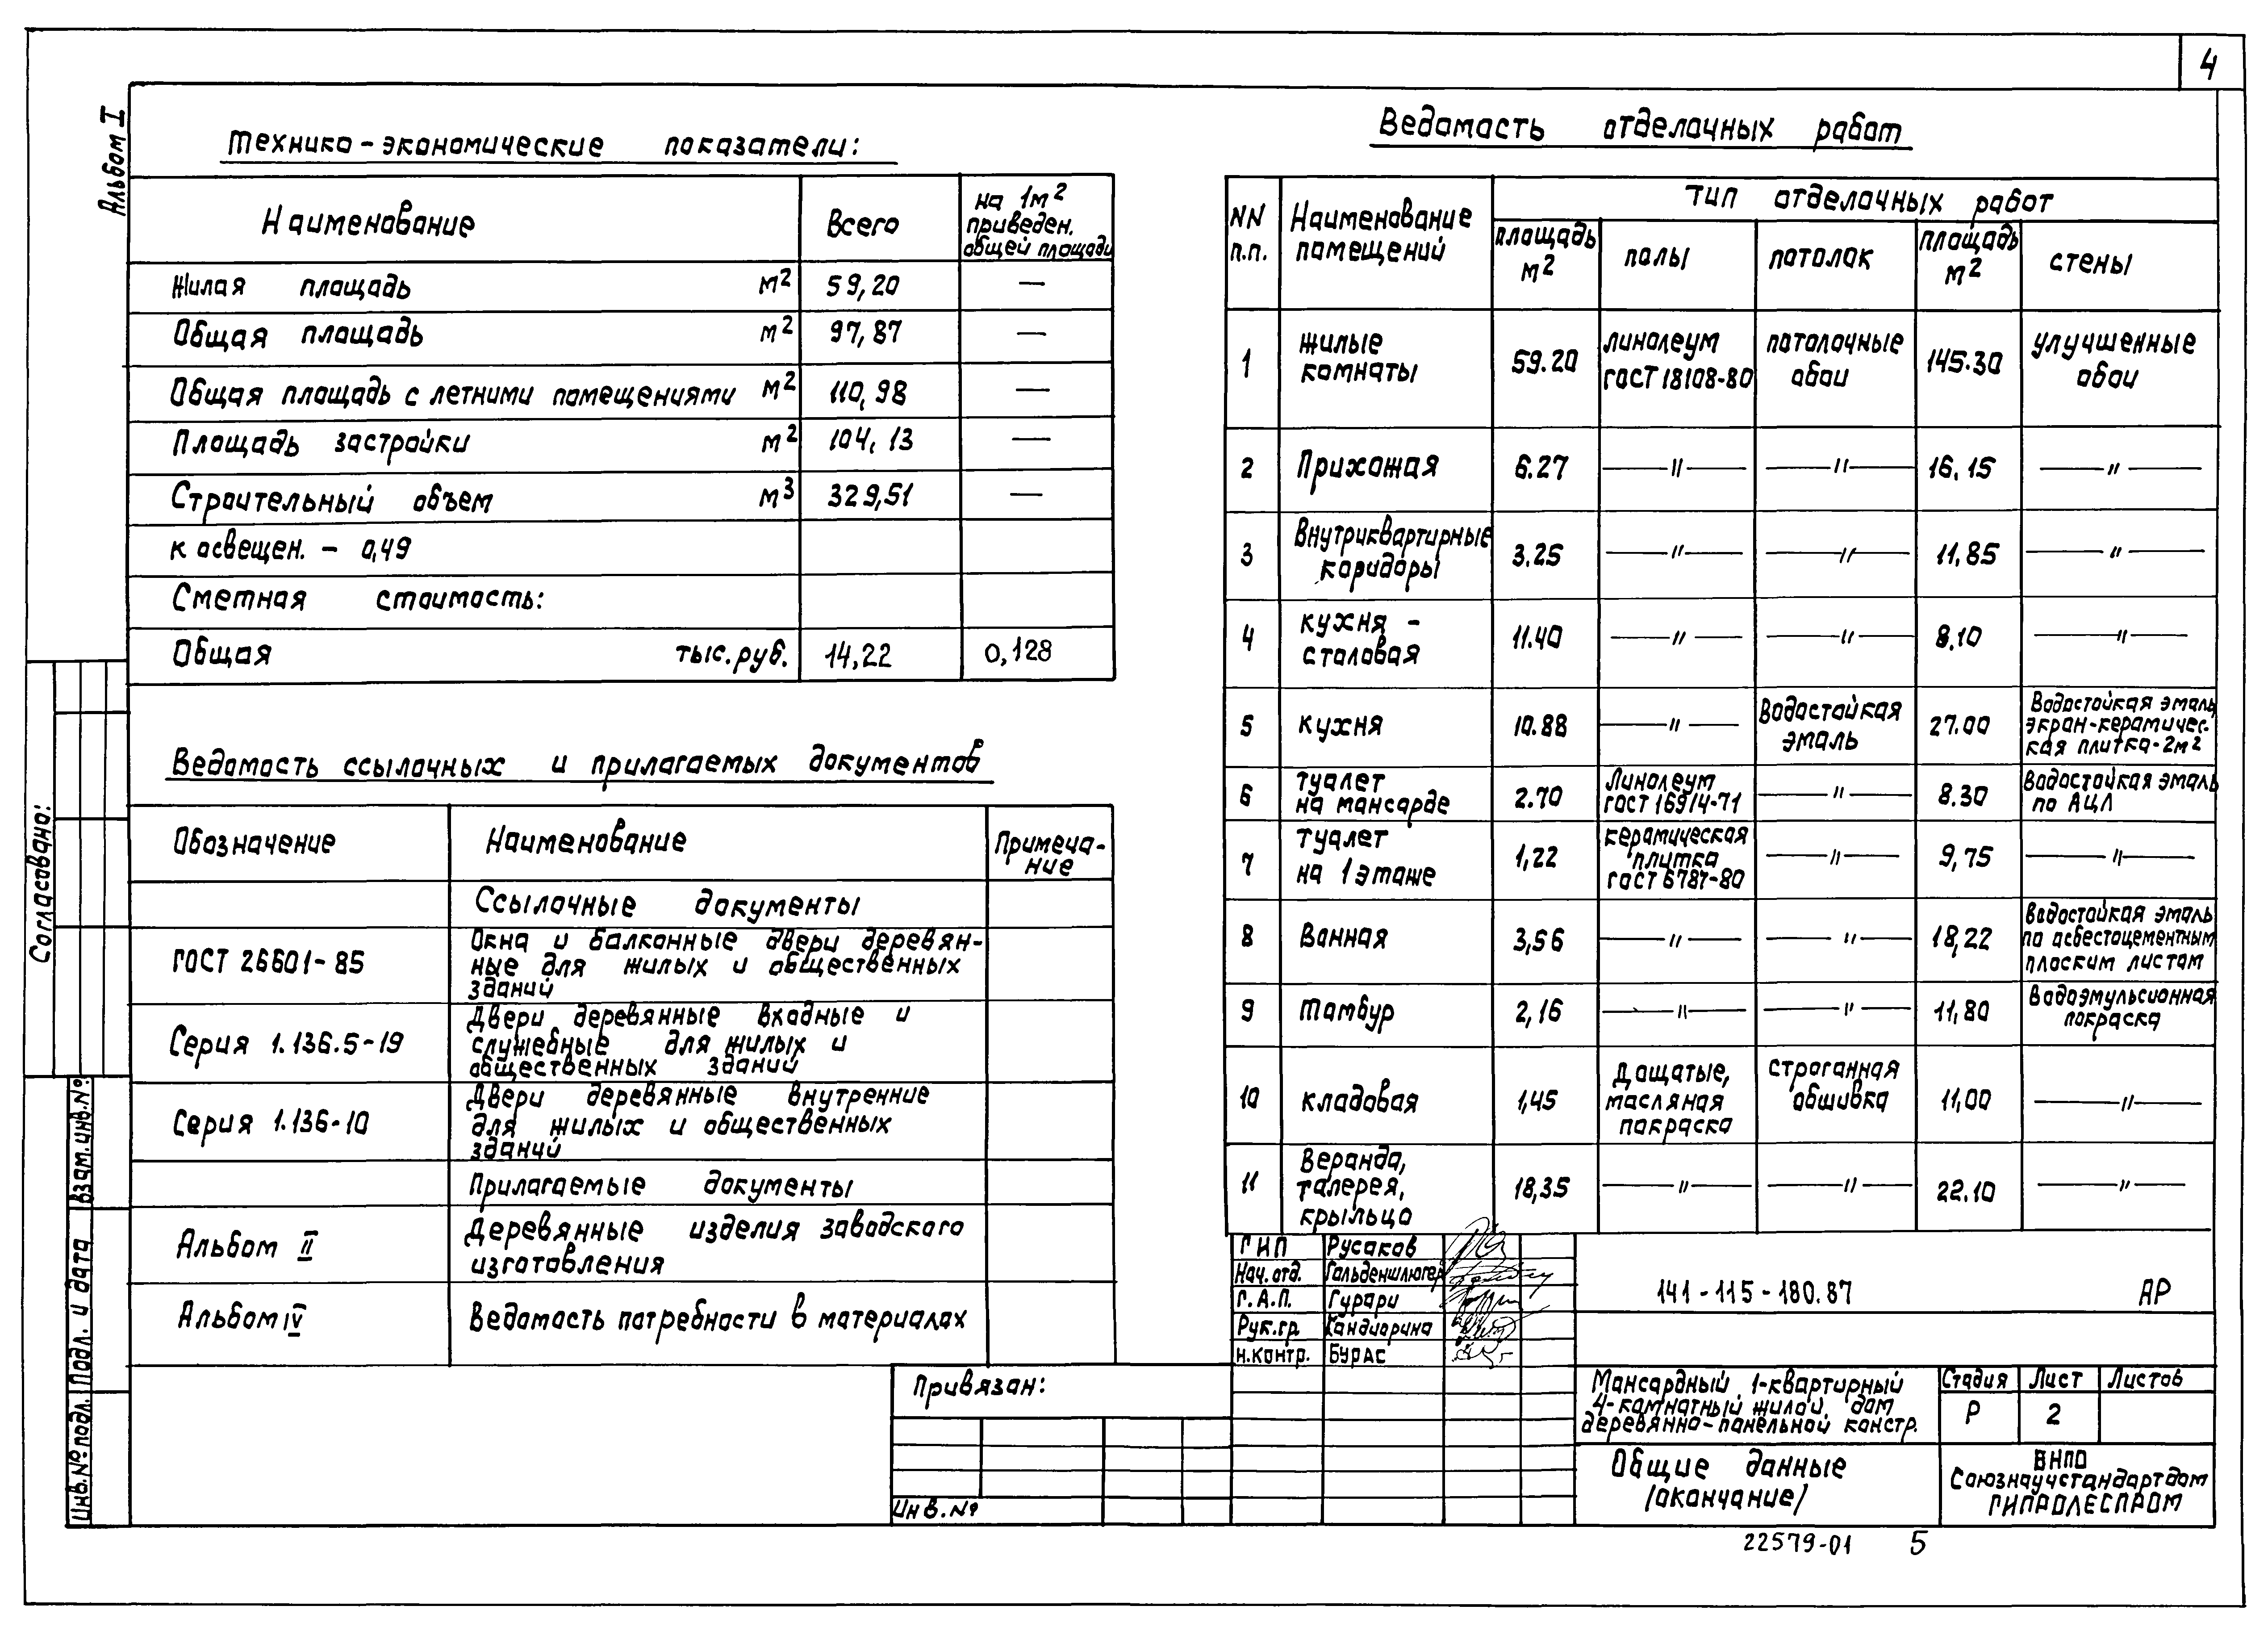 4
Альбом I
Технико-экономические показатели:
Наименование
Всего
на 1м²
приведен.
общей площади
Жилая площадь м² 59,20 —
Общая площадь м² 97,87 —
Общая площадь с летними помещениями м² 110,98 —
Площадь застройки м² 104,13 —
Строительный объем м³ 329,51 —
К освещен. - 0,49
Сметная стоимость:
Общая тыс.руб. 14,22 0,128
Ведомость ссылочных и прилагаемых документов
Обозначение
Наименование
Примеча-
ние
Ссылочные документы
ГОСТ 26601-85
Окна и балконные двери деревян-
ные для жилых и общественных
зданий
Серия 1.136.5-19
Двери деревянные входные и
служебные для жилых и
общественных зданий
Серия 1.136-10
Двери деревянные внутренние
для жилых и общественных
зданий
Прилагаемые документы
Альбом II
Деревянные изделия заводского
изготовления
Альбом IV
Ведомость потребности в материалах
Ведомость отделочных работ
NN
п.п.
Наименование
помещений
Тип отделочных работ
площадь
м²
полы
потолок
площадь
м²
стены
1
жилые
комнаты
59.20
линолеум
ГОСТ 18108-80
потолочные
обои
145.30
улучшенные
обои
2 Прихожая 6.27 —〃— —〃— 16.15 —〃—
3
Внутриквартирные
коридоры
3.25 —〃— —〃— 11,85 —〃—
4
кухня -
столовая
11.40 —〃— —〃— 8,10 —〃—
5 кухня 10.88 —〃—
Водостойкая
эмаль
27.00
Водостойкая эмаль
экран-керамичес-
кая плитка-2м²
6
туалет
на мансарде
2.70
Линолеум
ГОСТ 16914-71
—〃— 8.30
Водостойкая эмаль
по АЦЛ
7
туалет
на 1 этаже
1,22
керамическая
плитка
ГОСТ 6787-80
—〃— 9,75 —〃—
8 Ванная 3,56 —〃— —〃— 18,22
Водостойкая эмаль
по асбестоцементным
плоским листам
9 Тамбур 2,16 —〃— —〃— 11,80
Водоэмульсионная
покраска
10 кладовая 1,45
Дощатые,
масляная
покраска
строганная
обшивка
11,00 —〃—
11
Веранда,
галерея,
крыльцо
18,35 —〃— —〃— 22.10 —〃—
ГИП Русаков
Нач.отд. Гольденшлюгер
Г.А.П. Гурари
Рук.гр
н.контр. Бурас
141-115-180.87 АР
Мансардный 1-квартирный
4-комнатный жилой дом
деревянно-панельной констр.
Стадия Лист Листов
Р 2
Общие данные
/окончание/
ВНПО
Союзнаучстандартдом
ГИПРОЛЕСПРОМ
Привязан:
Инв.№
Согласовано:
Взам.инв.№
Подл. и дата
Инв.№подл.
22579-01 5